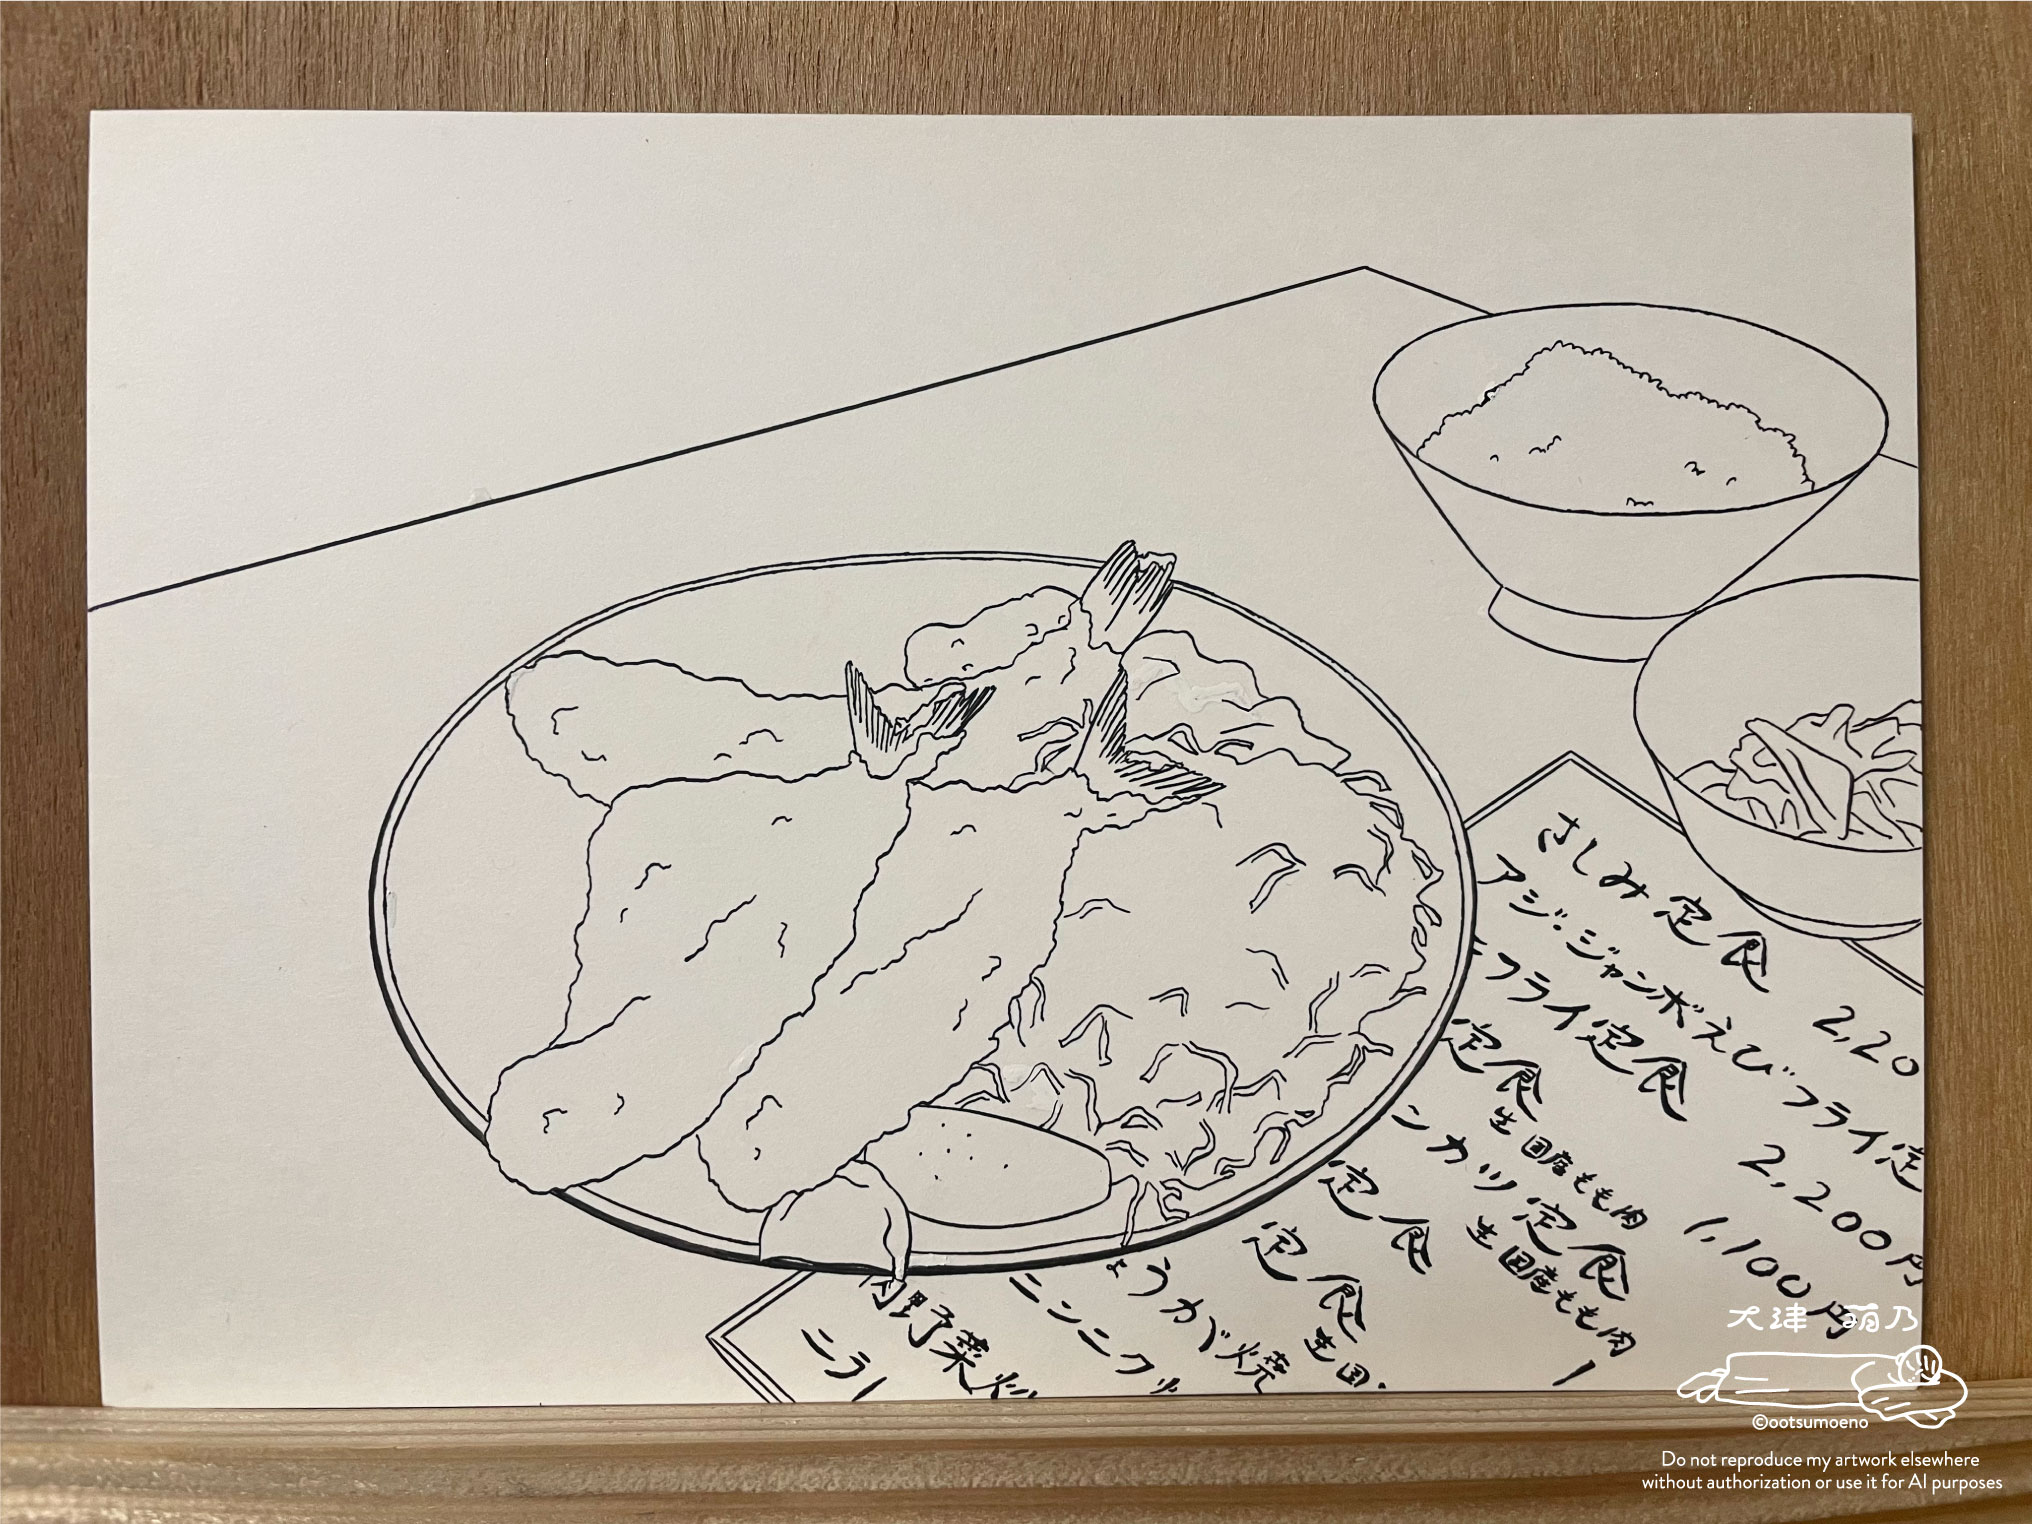 さしみ定食 2,20
アジ・ジャンボえびフライ定
フライ定食 2,200円
定食 生国産もも肉 1,100円
ンカツ定食 生国産もも肉 1
定食
定食 生国.
ょうが焼
ニンニク
肉野菜炒
ニラ
大津 萌乃
©ootsumoeno
Do not reproduce my artwork elsewhere
without authorization or use it for AI purposes